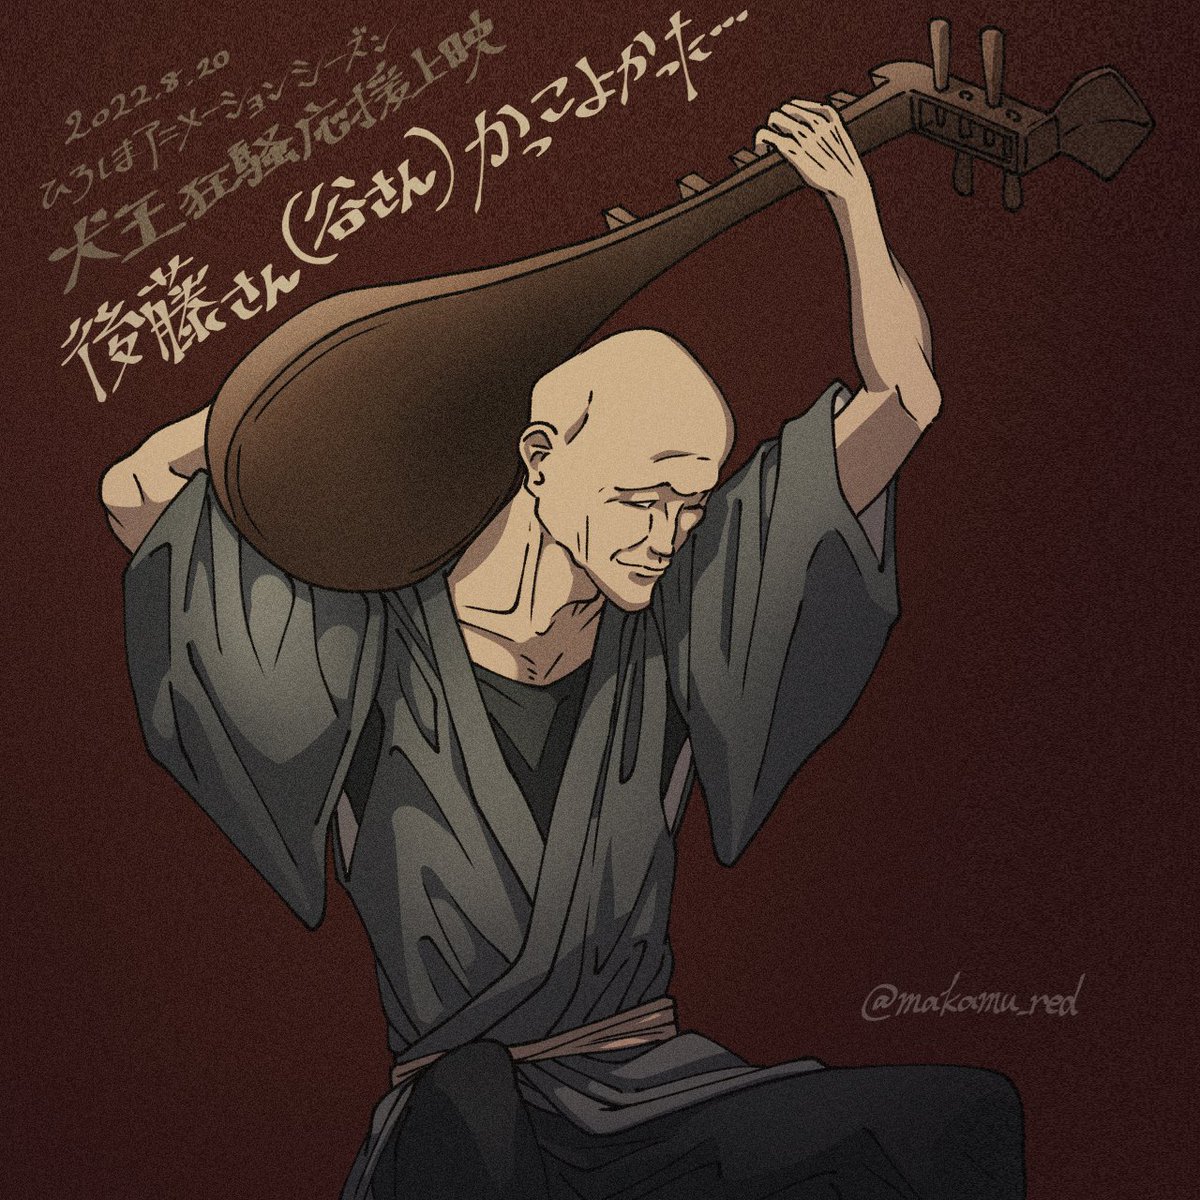 2022.8.20
ひろしまアニメーションシーズン
犬王狂騒応援上映
後藤さん(谷さん)かっこよかった…
@makamu_red